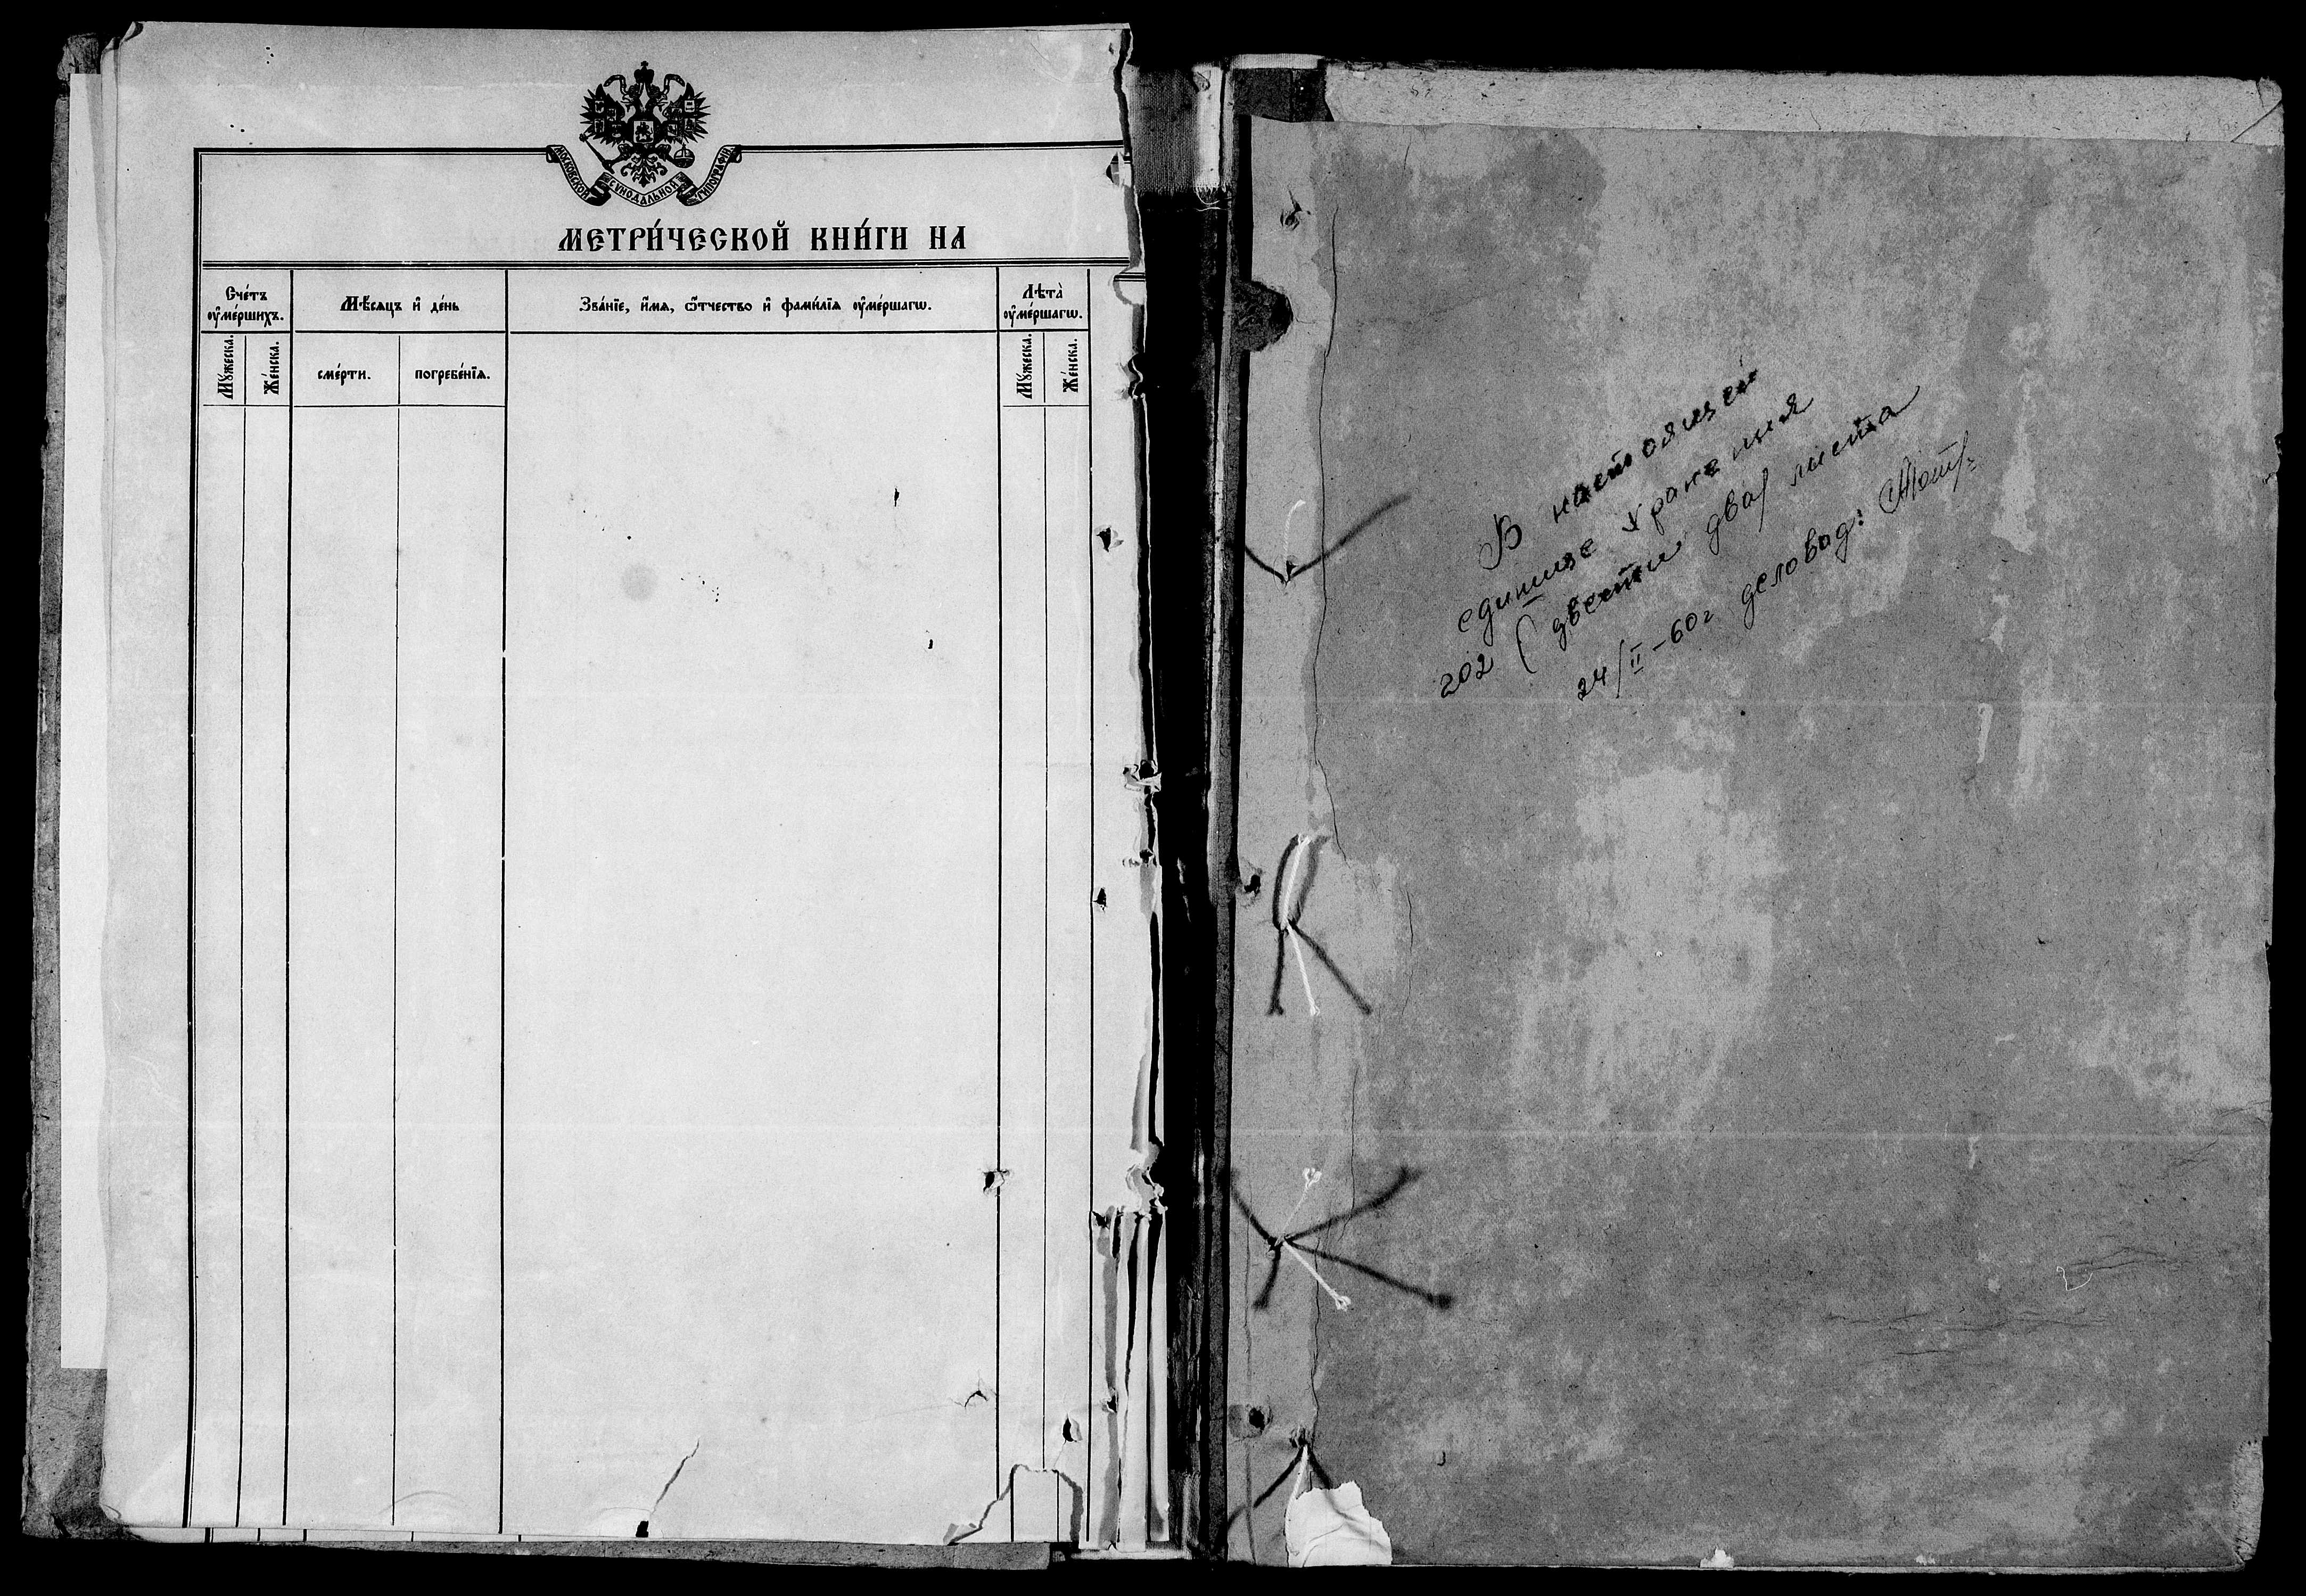 МОСКОВСКОЙ СѴНОДАЛЬНОЙ ТИПОГРАФІИ
МЕТРИ́ЧЕСКОЙ КНИ́ГИ НА
Сче́тъ ᲂу҆ме́ршихъ.
Мѣ́сяцъ и҆ де́нь
Зва́нїе, и҆́мѧ, ѻ҆́тчество и҆ фами́лїѧ ᲂу҆ме́ршагѡ.
Лѣта̀ ᲂу҆ме́ршагѡ.
Мꙋ́жеска.
Же́нска.
сме́рти.
погребе́нїѧ.
Мꙋ́жеска.
Же́нска.
В настоящей
единице хранения
202 (двести два) листа
24/II-60г деловод: